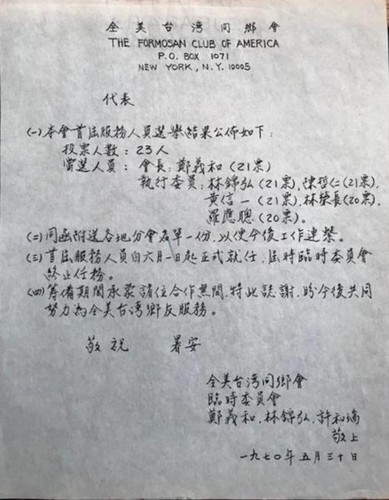 全美台湾同鄉會
THE FORMOSAN CLUB OF AMERICA
P.O. BOX 1071
NEW YORK, N.Y. 10005
代表
(一)本會首屆服務人員選舉結果公佈如下:
投票人數:23人
當選人員:會長:鄭義和(21票)
執行委員:林錦弘(21票),陳哲仁(21票),
黃信一(21票),林榮長(20票),
羅應聰(20票)。
(二)同函附送各地分會名單一份,以便今後工作連繫。
(三)首屆服務人員自六月一日起正式就任,屆時臨時委員會
終止任務。
(四)籌備期間承蒙諸位合作無間,特此誌謝,盼今後共同
努力為全美台灣鄉友服務。
敬祝 暑安
全美台湾同鄉會
臨時委員會
鄭義和、林錦弘、許和瑞
敬上
一九七〇年五月三十日